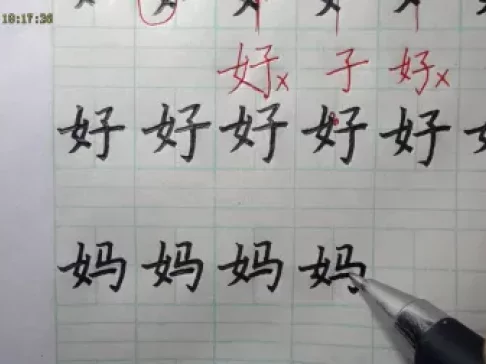 18:17:26
好x 子 好x
好 好 好 好 好
妈 妈 妈 妈